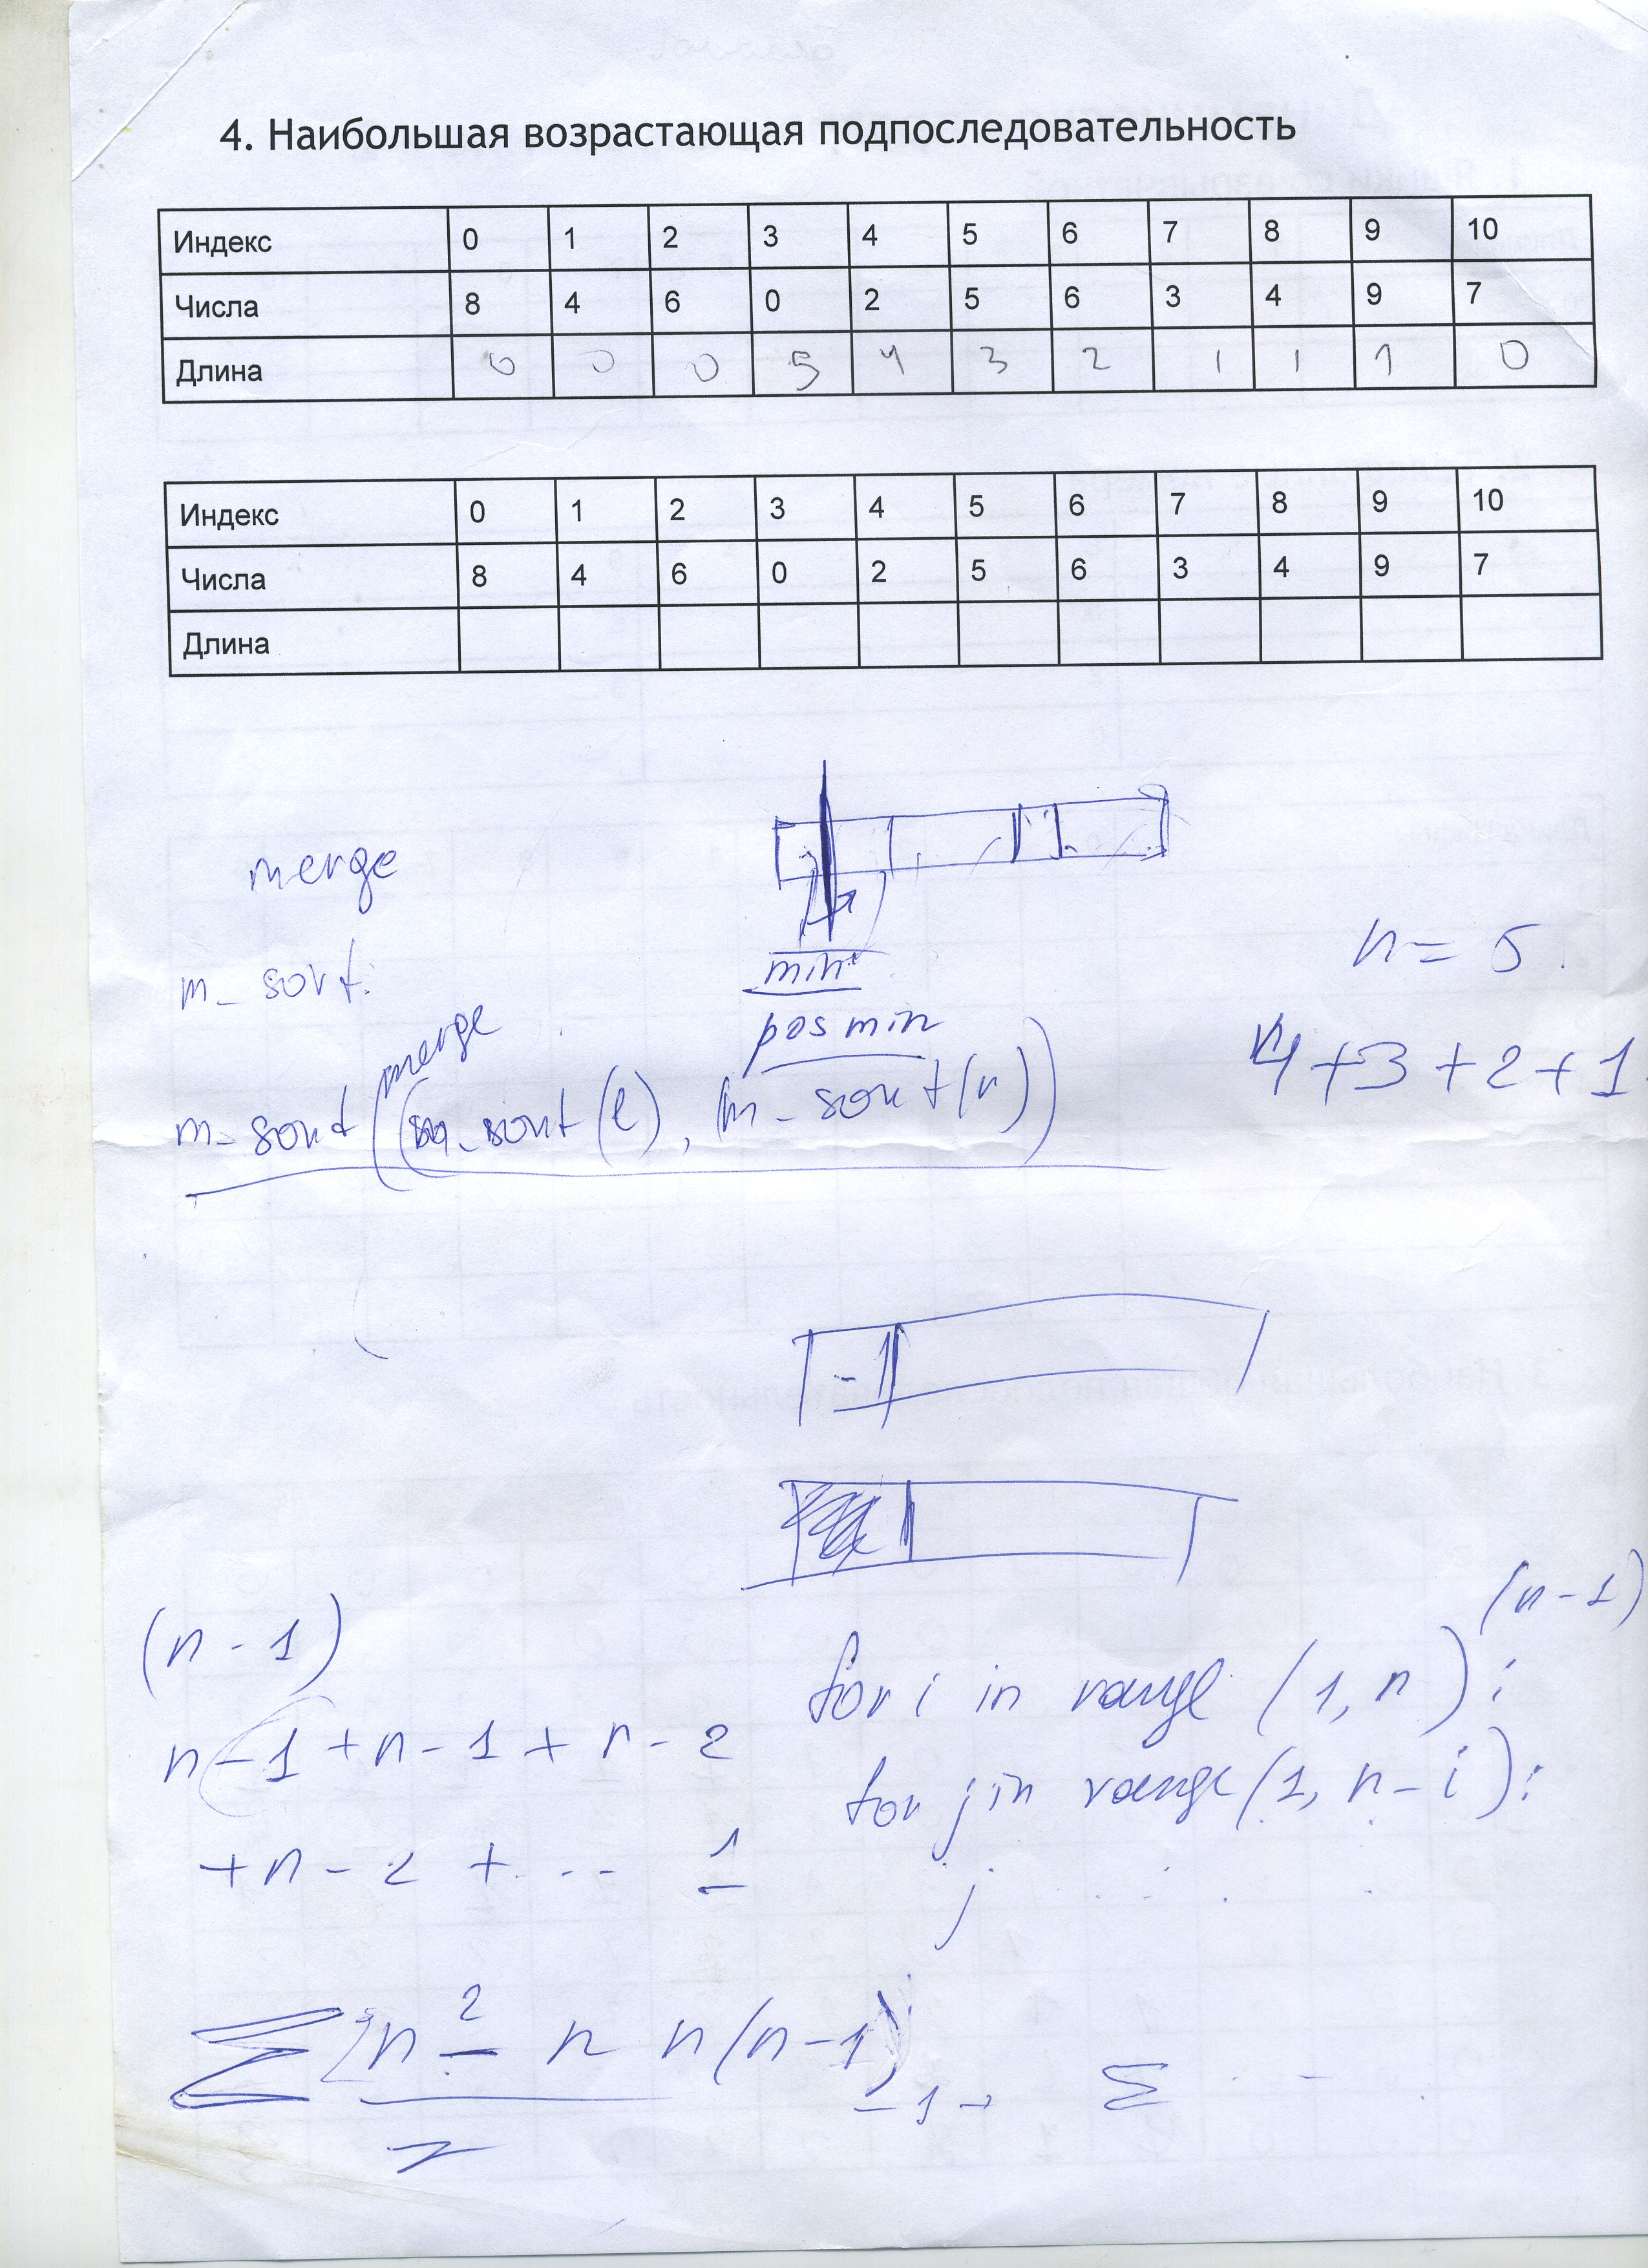 4. Наибольшая возрастающая подпоследовательность
Индекс 0 1 2 3 4 5 6 7 8 9 10
Числа 8 4 6 0 2 5 6 3 4 9 7
Длина 0 0 0 5 4 3 2 1 1 1 0
Индекс 0 1 2 3 4 5 6 7 8 9 10
Числа 8 4 6 0 2 5 6 3 4 9 7
Длина
merge
min
n = 5.
m_sort:
pos min
4+3+2+1
merge
m_sort((m_sort(l), (m_sort(r))
-1
(n-1)
(n-1)
for i in range (1, n):
n-1+n-1+n-2
for j in range(1, n-i):
+n-2+... 1
j
Σ n² - n n(n-1) -1 Σ
2